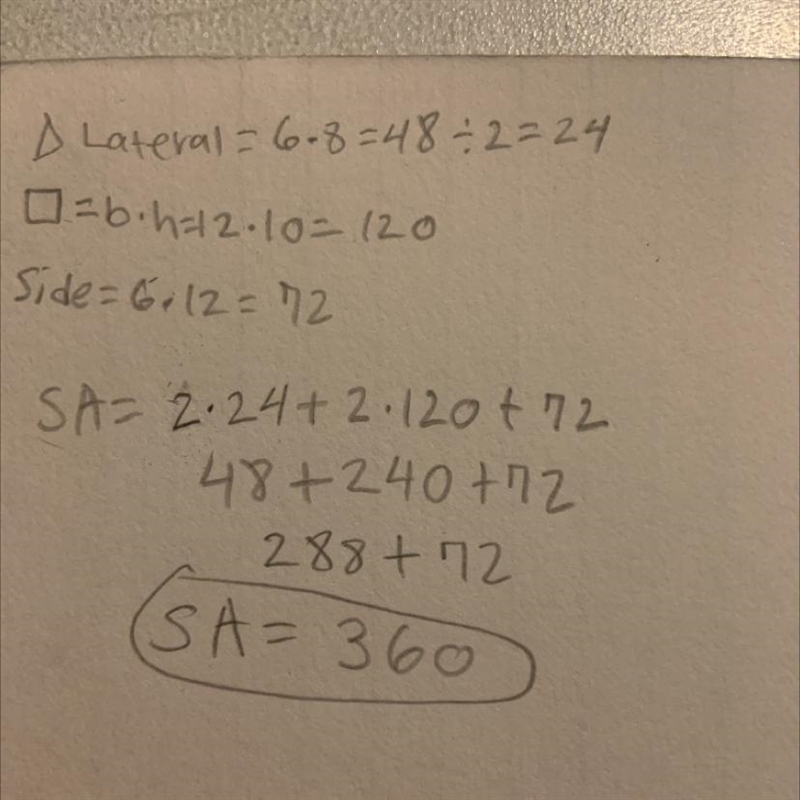 Δ Lateral = 6·8=48÷2=24
□=b·h=12·10=120
Side=6·12=72
SA= 2·24+2·120+72
48+240+72
288+72
SA= 360